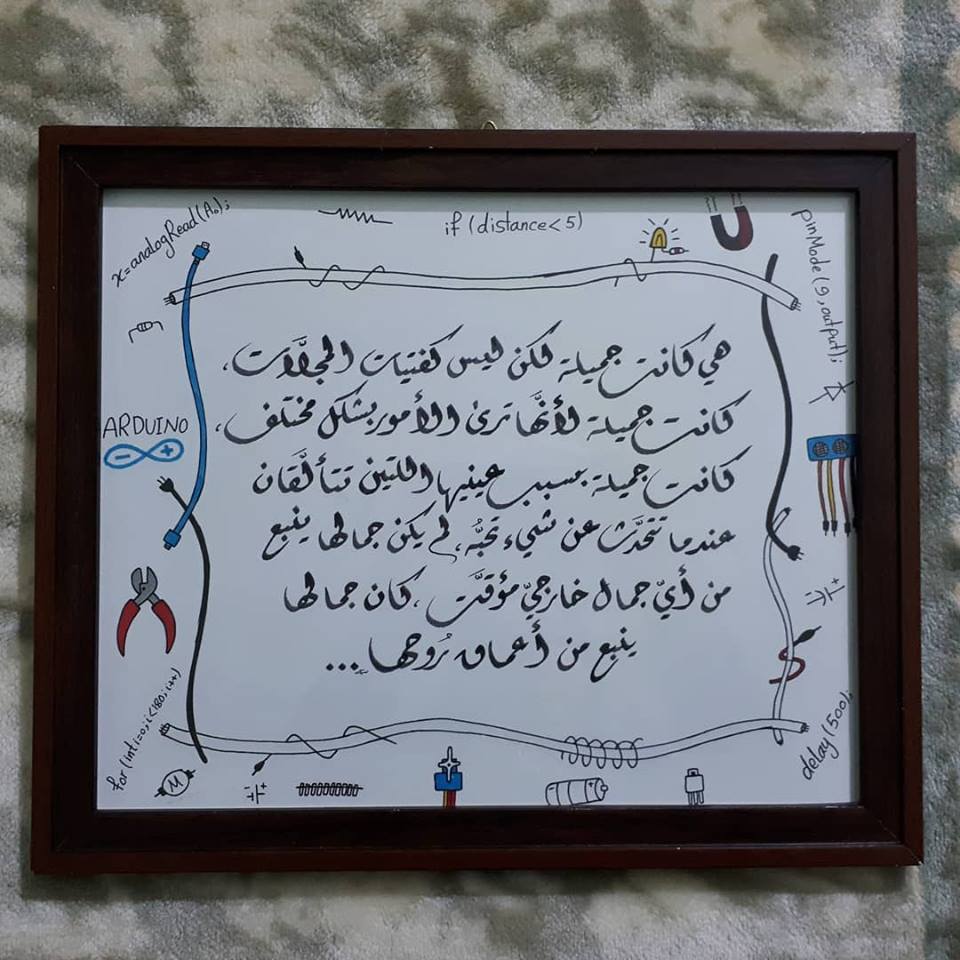 x=analogRead(A0);
if (distance<5)
pinMode(9,output);
هي كانت جميلة لكن ليس كفتيات المجلَّات،
كانت جميلة لأنَّها ترى الأمور بشكل مختلف،
كانت جميلة بسبب عينيها اللتين تتألَّقان
عندما تتحدَّث عن شيء تحبُّه، لم يكن جمالها ينبع
من أيّ جمال خارجيّ مؤقَّت، كان جمالها
ينبع من أعماق رُوحهاِ...
ARDUINO
- +
+
-
for (int i=0;i<180;i++)
M
- +
delay(500);